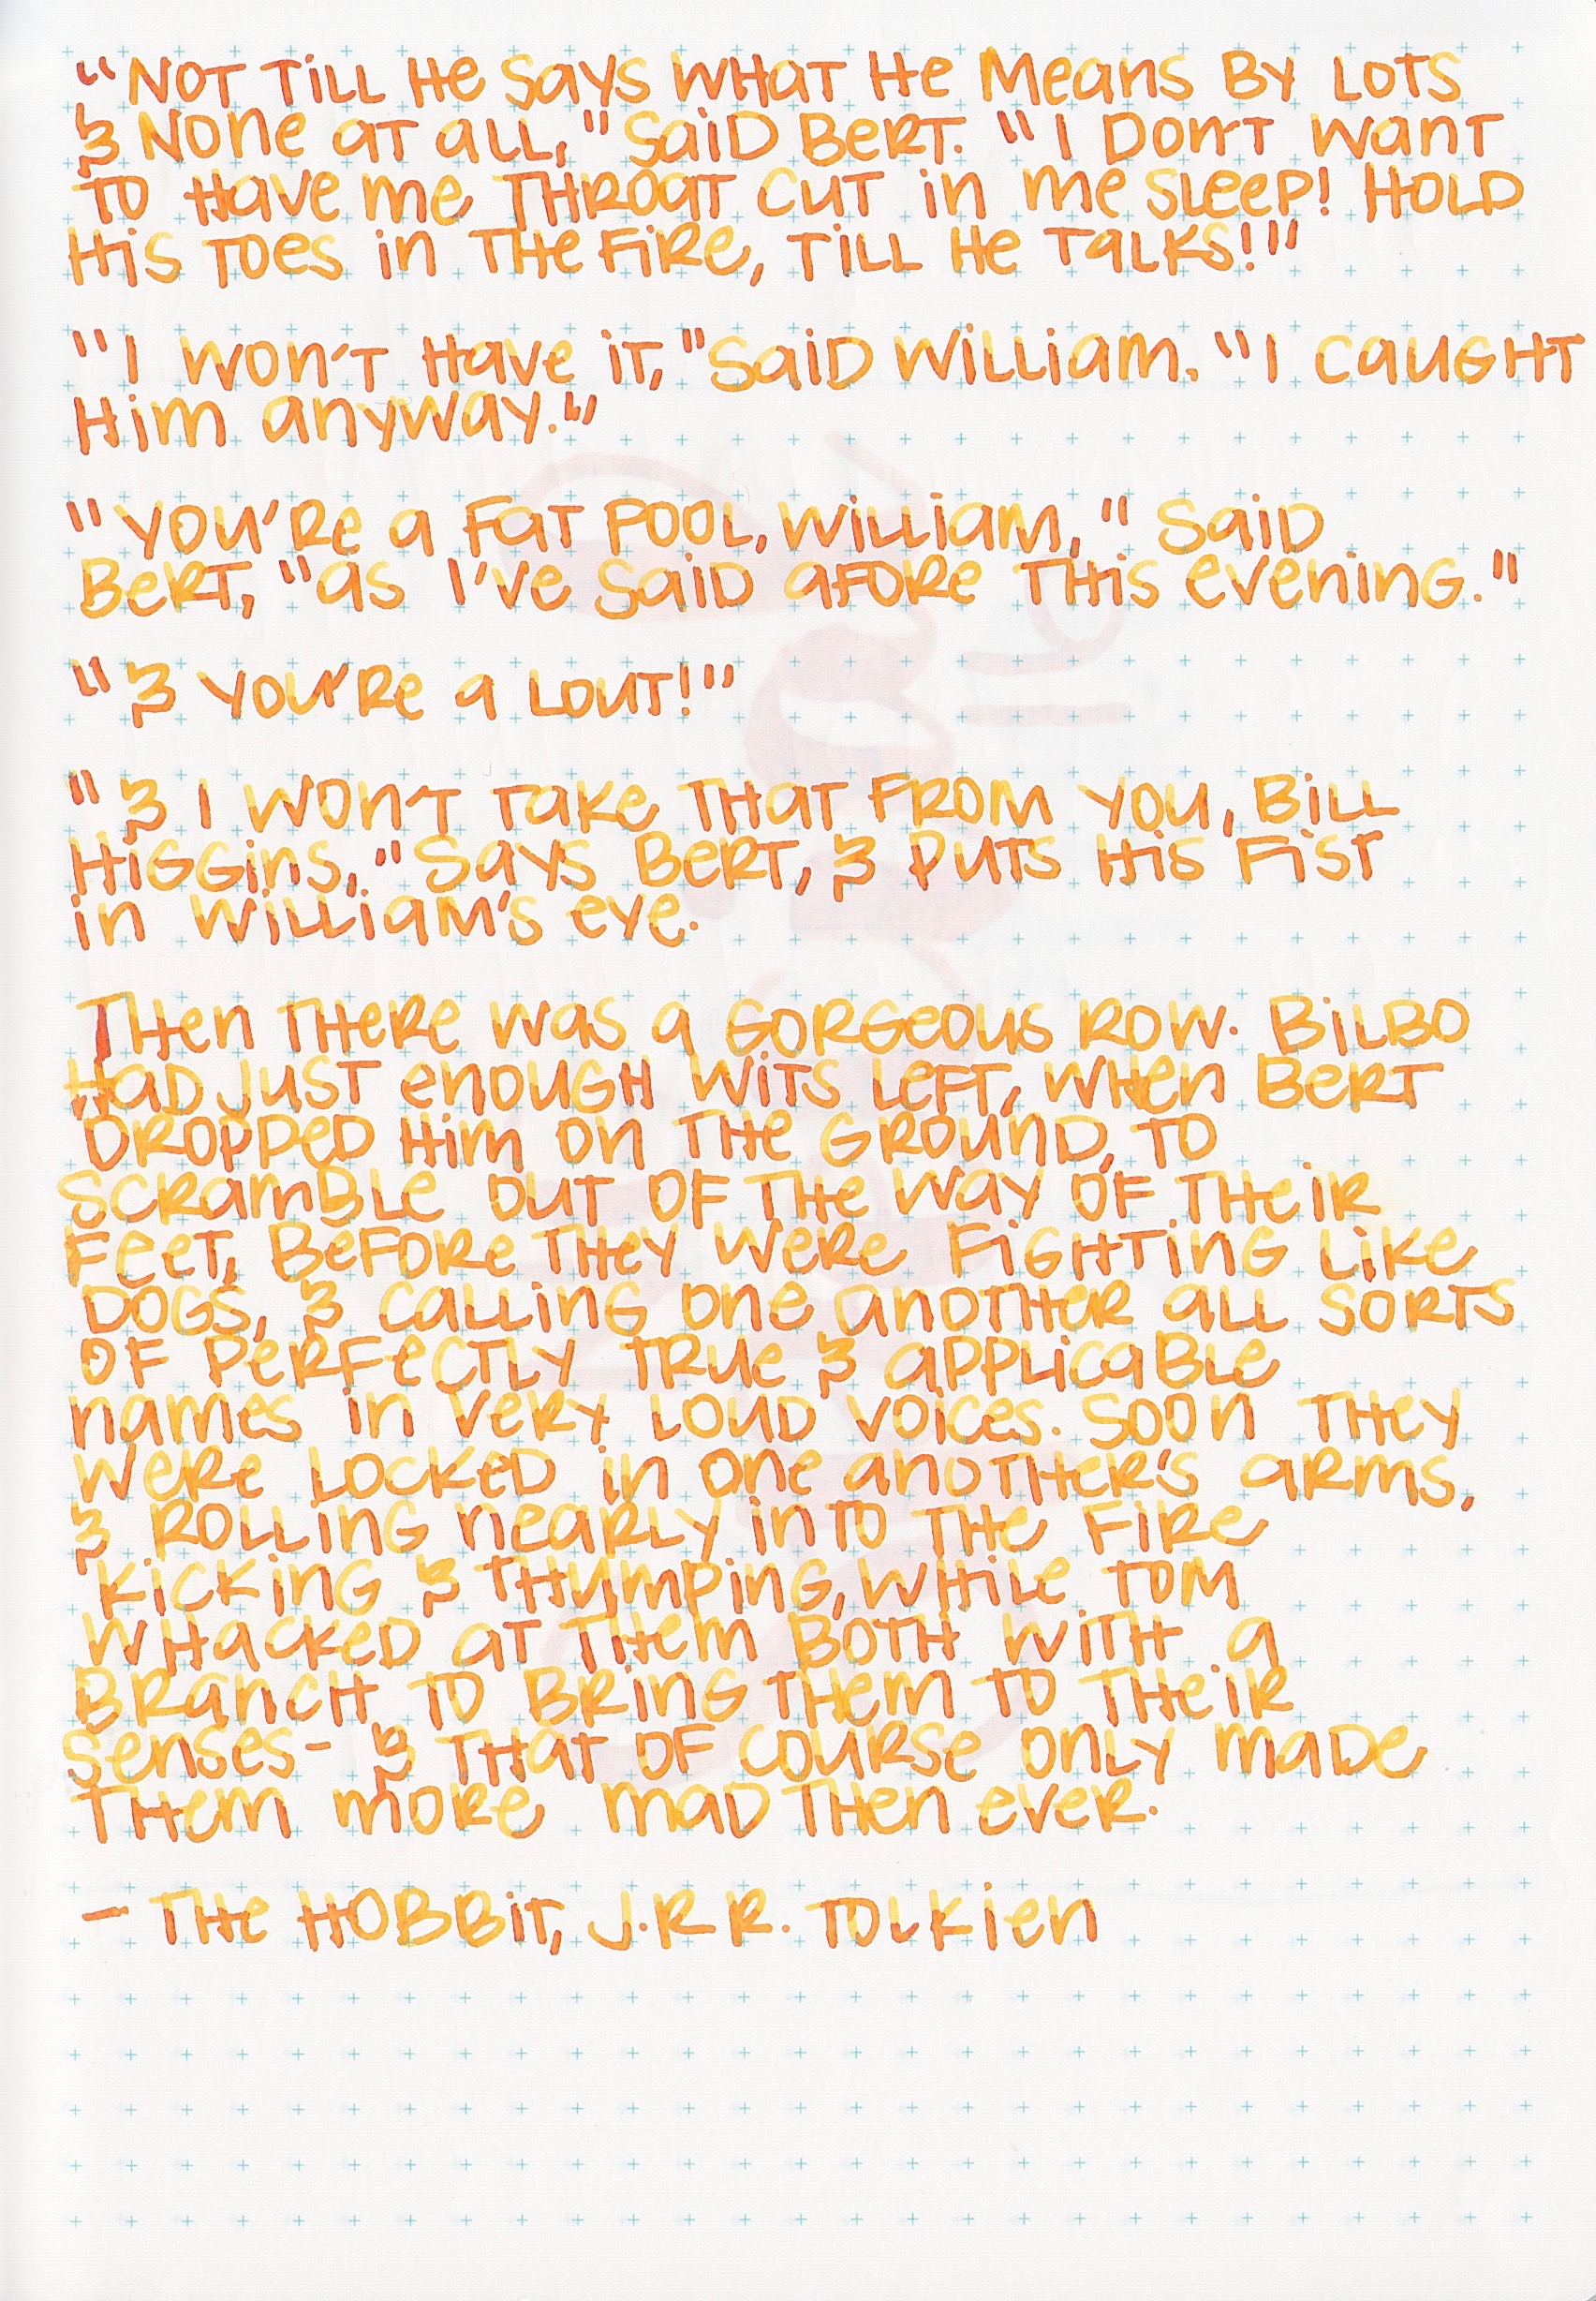 "Not till he says what he means by lots
& none at all," said Bert. "I don't want
to have me throat cut in me sleep! Hold
his toes in the fire, till he talks!"
"I won't have it," said William. "I caught
him anyway."
"You're a fat fool, William," said
Bert, "as I've said afore this evening."
"& you're a lout!"
"& I won't take that from you, Bill
Higgins," says Bert, & puts his fist
in William's eye.
Then there was a gorgeous row. Bilbo
had just enough wits left, when Bert
dropped him on the ground, to
scramble out of the way of their
feet, before they were fighting like
dogs, & calling one another all sorts
of perfectly true & applicable
names in very loud voices. Soon they
were locked in one another's arms,
& rolling nearly into the fire
kicking & thumping, while Tom
whacked at them both with a
branch to bring them to their
senses- & that of course only made
them more mad then ever.
- The Hobbit, J.R.R. Tolkien